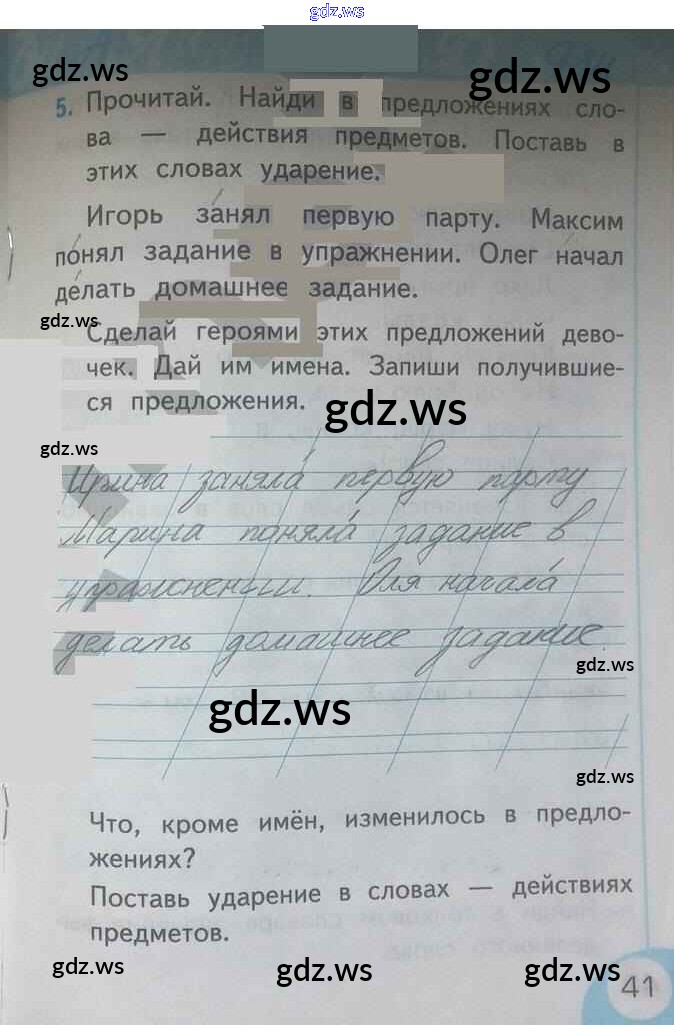 gdz.ws
gdz.ws gdz.ws
5. Прочитай. Найди в предложениях сло-
ва — действия предметов. Поставь в
этих словах ударение.
Игорь за́нял первую парту. Максим
по́нял задание в упражнении. Олег на́чал
де́лать домашнее задание.
gdz.ws
Сделай героями этих предложений дево-
чек. Дай им имена. Запиши получившие-
ся предложения.
gdz.ws
gdz.ws
Ирина заняла́ первую парту
Марина поняла́ задание в
упражнении. Оля начала́
делать домашнее задание.
gdz.ws
gdz.ws
gdz.ws
Что, кроме имён, изменилось в предло-
жениях?
Поставь ударение в словах — действиях
предметов.
gdz.ws gdz.ws gdz.ws
41